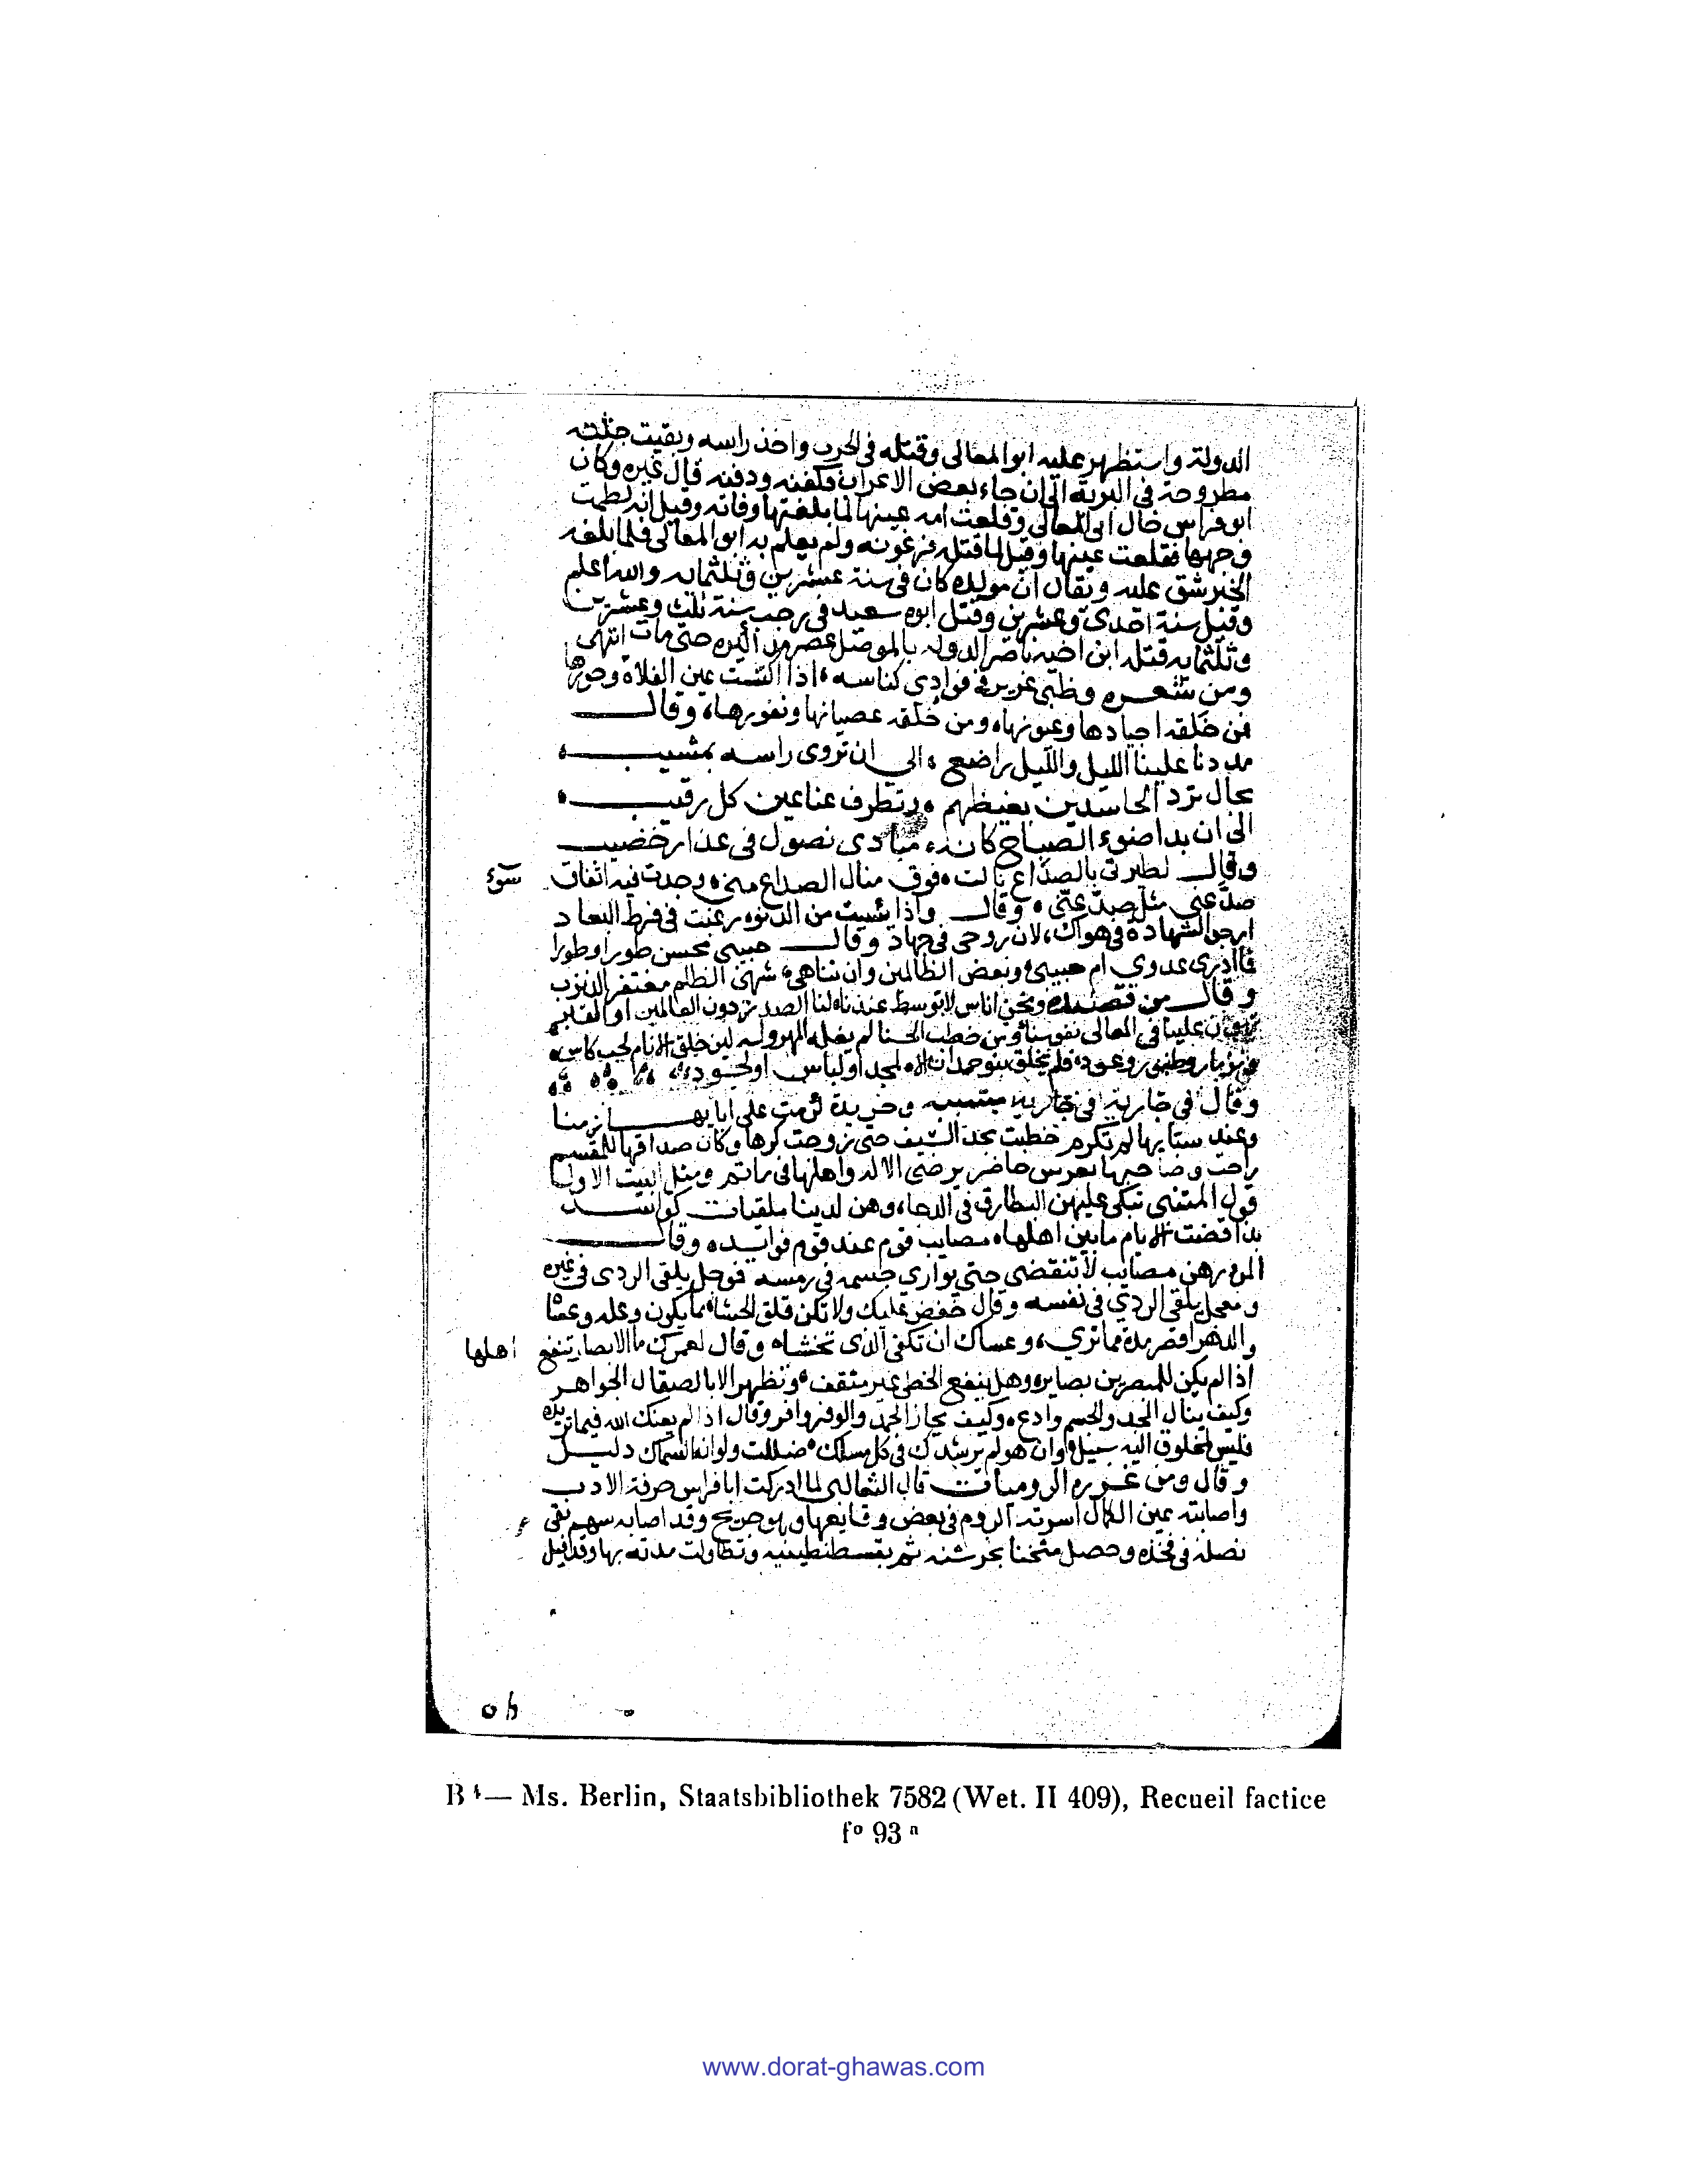 الدولة واستظهر عليه ابو المعالى وقتله فى الحرب واخذ راسه وبقيت جثته
مطروحة فى البرية الى ان جاء بعض الاعراب فكفنه ودفنه قال غيره وكان
ابو فراس خال ابى المعالى وقلعت امه عينها لما بلغتها وفاته وقيل انه لطمت
وجهها فقلعت عينها وقيل لما قتله فرغونه ولم يعلم به ابو المعالى فلما بلغه
الخبر شق عليه ويقال ان مولده كان فى سنة عشرين وثلثمايه والله اعلم
وقيل سنة احدى وعشرين وقتل ابوه سعيد فى رجب سنة ثلث وعشرين
وثلثمايه قتله ابن اخيه ناصر الدوله بالموصل عصر مذاكيره حتى مات انتهى
ومن شعره وظبى غرير فى فوادى كناسه اذا اكتنست عين الفلاة وحورها
فمن خلقه اجيادها وعيونها ومن خلقه عصيانها ونفورها وقال
مددنا علينا الليل والليل راضع الى ان تروى راسه بمشيب
بحال ترد الحاسدين بغيظهم وتطرف عنا عين كل رقيب
الى ان بدا ضوء الصباح كانه مبادى نصول فى عذار خضيب
وقال لطيرتى بالصداع نالت فوق منال الصداع منى وجدت فيه اتفاق سوء
صد عنى مثل صد عنى وقال واذا يئست من الدنو رغبت فى فرط البعاد
ارجو الشهادة فى هواك لان روحى فى جهاد وقال حبيبى محسن طورا وطورا
فما ادرى عدوى ام حبيبى وبعض الظالمين وان تناهى شهى الظلم مغتفر الذنوب
وقال من قصيده ونحن اناس لا توسط عندنا لنا الصدر دون العالمين او القبر
تهون علينا فى المعالى نفوسنا ومن خطب الحسنا لم يغله المهر وله لين خلق الانام لحب كاس
ومزمار وطنبور وعود فلم يخلق بنو حمدان الا لمجد او لباس او لجود
وقال فى جارية وخريدة كرمت على ابايها زمنا
وعند سبايها لم تكرم خطبت بحد السيف حتى زوجت كرها وكان صداقها للمقسم
راحت وصاحبها بعرس حاضر يرضى الاله واهلها فى ماتم ومثل البيت الاول
قول المتنبى تبكى عليهن البطارق فى الدجا وهن لدينا ملقيات كواسد
بذا قضت الايام ما بين اهلها مصايب قوم عند قوم فوايد وقال
المرء رهن مصايب لا تنقضى حتى يوارى جسمه فى رمسه فموجل يلقى الردى فى غيره
ومعجل يلقى الردى فى نفسه وقال خفض عليك ولا تكن قلق الحشا مما يكون وعله وعسا
والدهر اقصر مدة مما ترى وعساك ان تكفى الذى تخشاه وقال لعمرك ما الابصار تنفع اهلها
اذا لم يكن للمبصرين بصاير وهل ينفع الخطى غير مثقف وتظهر الا بالصقال الجواهر
وكيف ينال المجد والجسم وادع وكيف يحاز الحمد والوفر وافر وقال اذا لم يعنك الله فيما تريده
فليس لمخلوق اليه سبيل وان هو لم يرشدك فى كل مسلك ضللت ولو ان السماك دليل
وقال ومن غرره الروميات قال الثعالبى لما ادركت ابا فراس حرفة الادب
واصابته عين الكمال اسرته الروم فى بعض وقايعها وهو جريح وقد اصابه سهم بقى
نصله فى فخذه وحصل مثخنا بخرشنه ثم بقسطنطينيه وتطاولت مدته بها وقد قيل
B ⁴ — Ms. Berlin, Staatsbibliothek 7582 (Wet. II 409), Recueil factice
fº 93 ª
www.dorat-ghawas.com